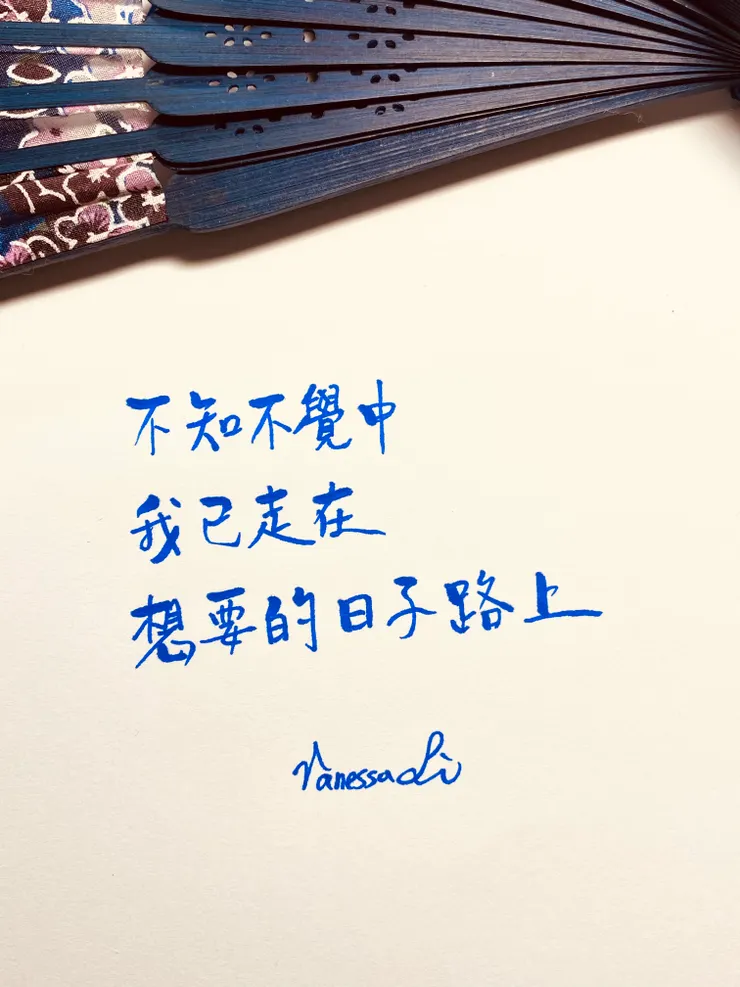 不知不覺中
我已走在
想要的日子路上
Vanessa Li